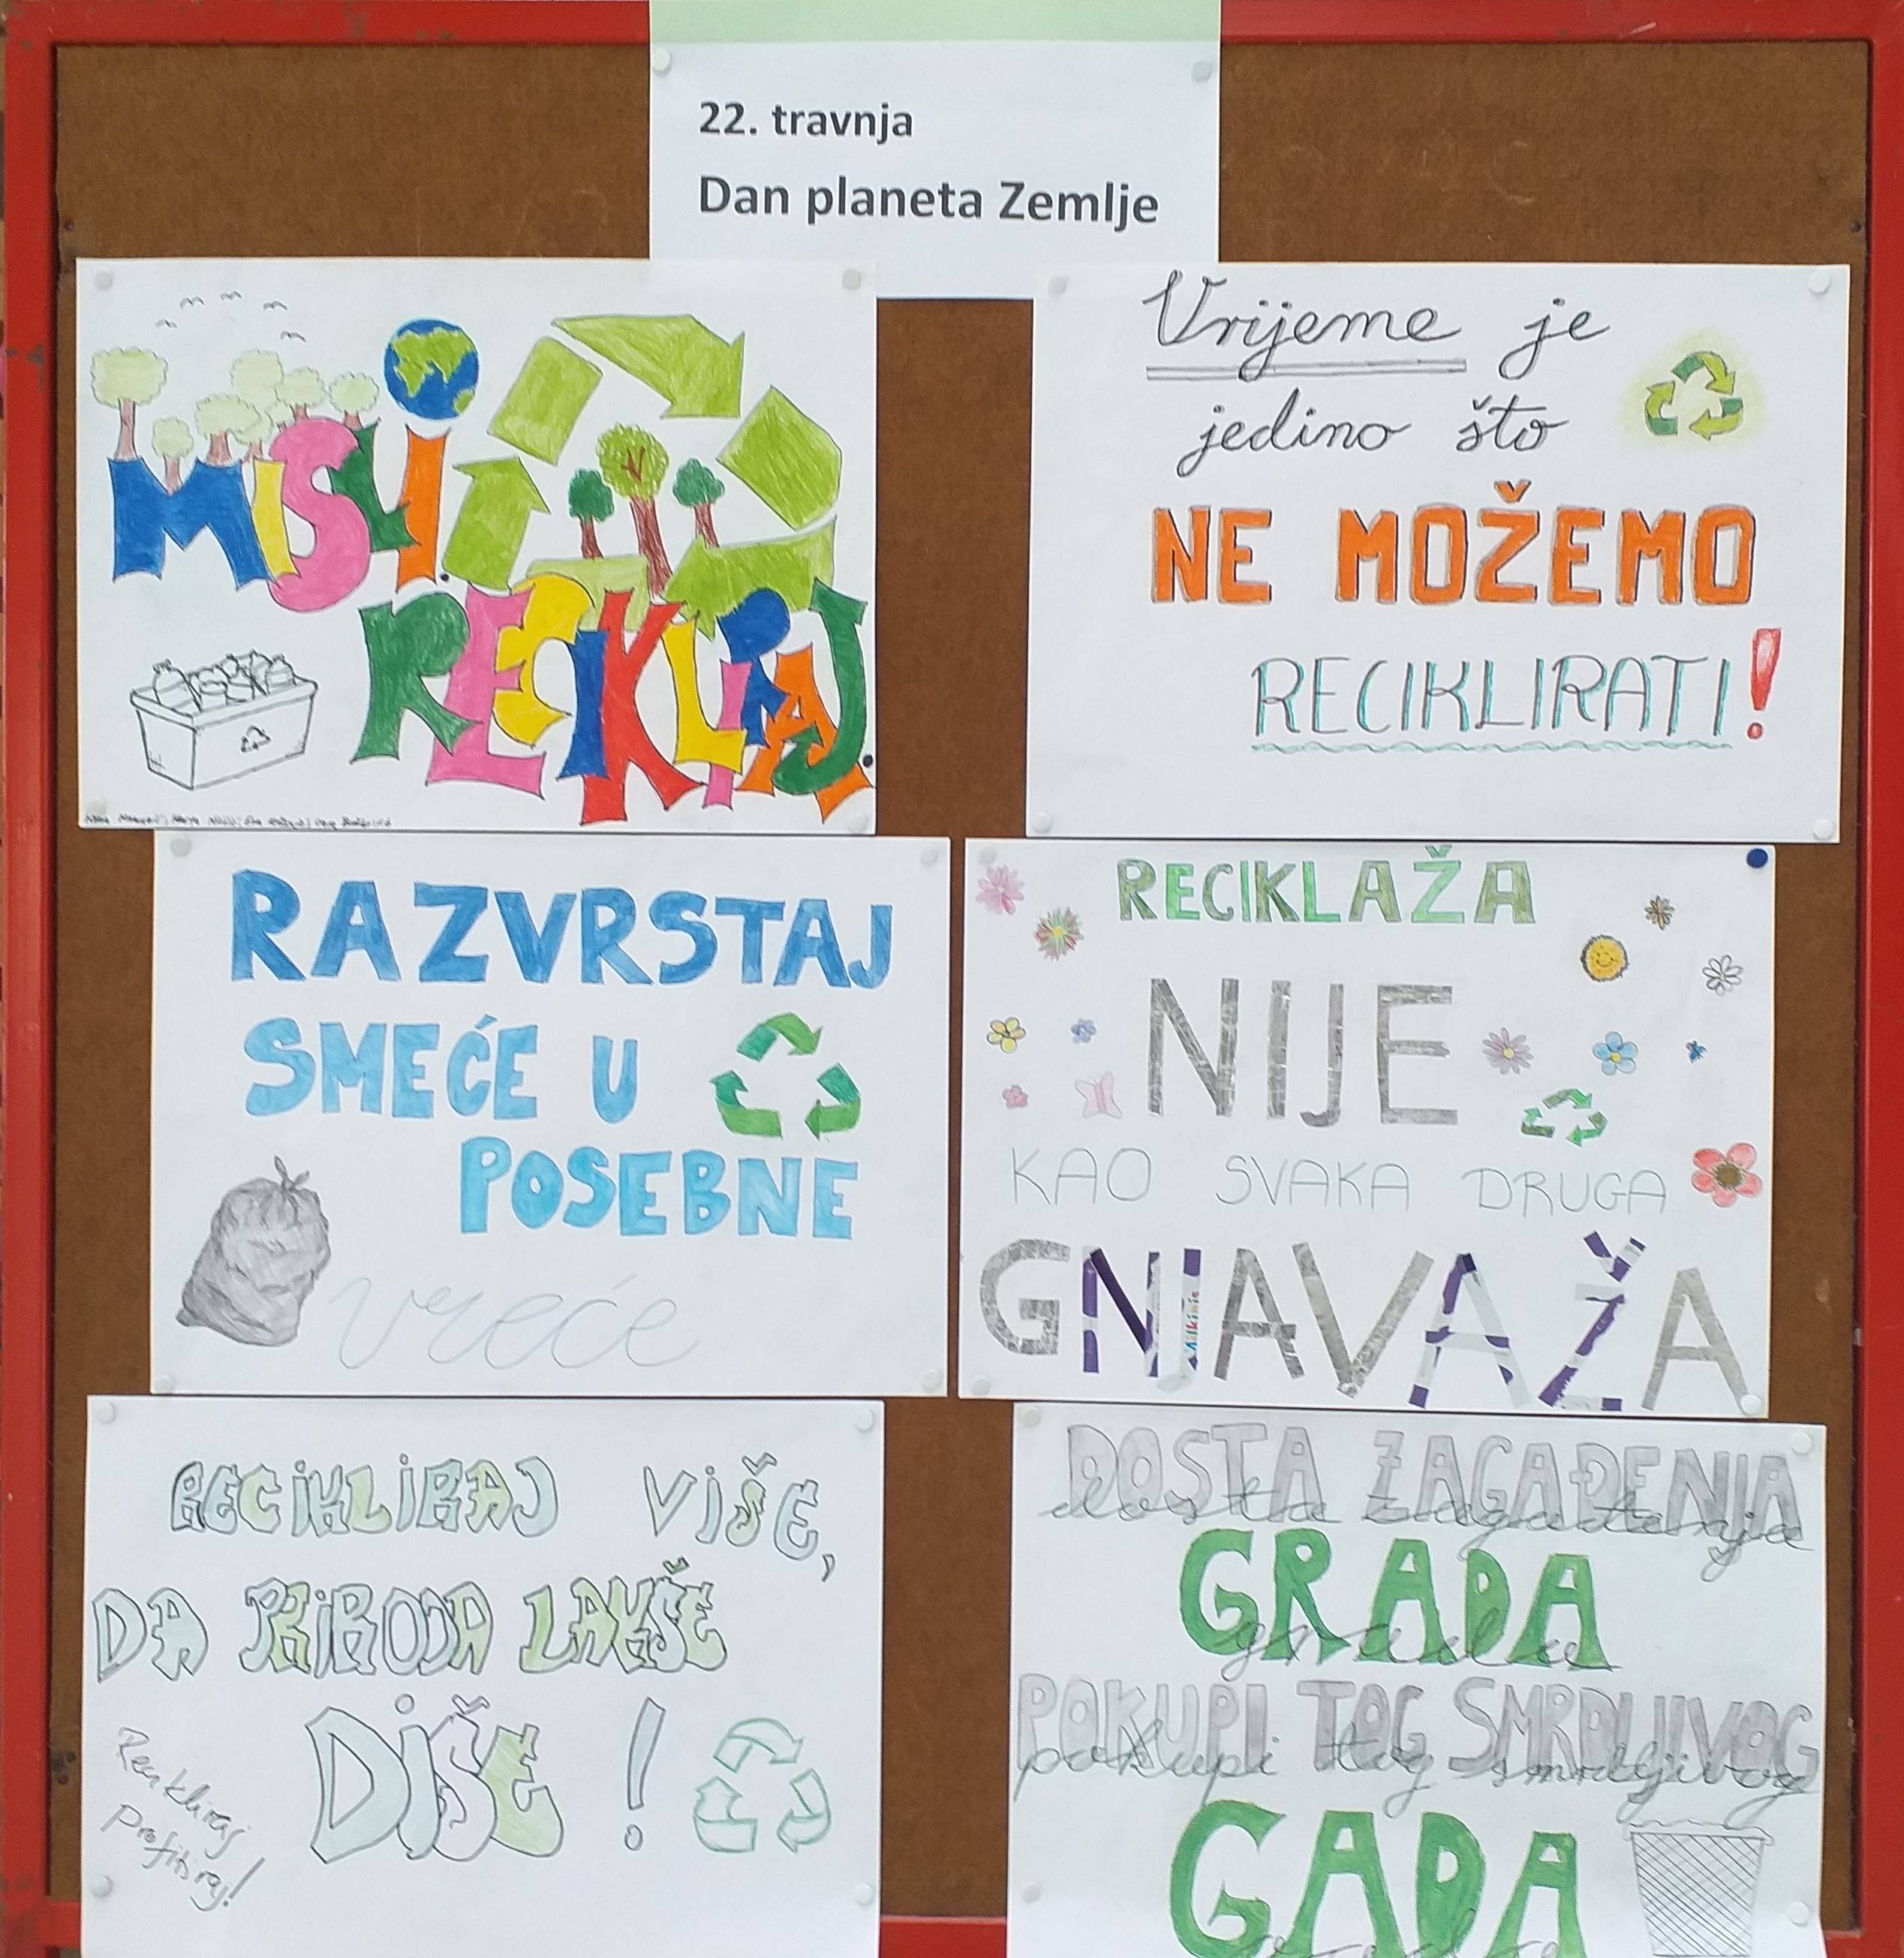 22. travnja
Dan planeta Zemlje
MISLI.
RECIKLIRAJ.
Vrijeme je
jedino što
NE MOŽEMO
RECIKLIRATI!
RAZVRSTAJ
SMEĆE U
POSEBNE
vreće
RECIKLAŽA
NIJE
KAO SVAKA DRUGA
GNJAVAŽA
RECIKLIRAJ VIŠE,
DA PRIRODA LAKŠE
DIŠE!
Recikliraj
Profitiraj!
DOSTA ZAGAĐENJA
dosta zagađenja
GRADA
grada
POKUPI TOG SMRDLJIVOG
pokupi tog smrdljivog
GADA